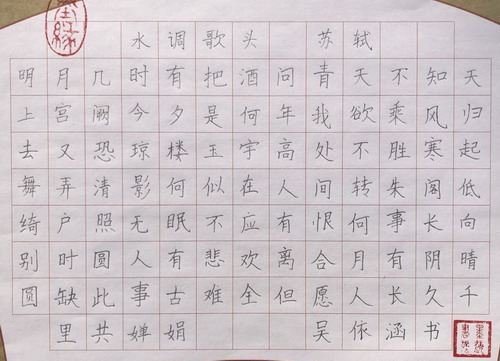 墨緣
水调歌头 苏轼
明月几时有把酒问青天不知天
上宫阙今夕是何年我欲乘风归
去又恐琼楼玉宇高处不胜寒起
舞弄清影何似在人间转朱阁低
绮户照无眠不应有恨何事长向
别时圆人有悲欢离合月有阴晴
圆缺此事古难全但愿人长久千
里共婵娟 吴依涵书